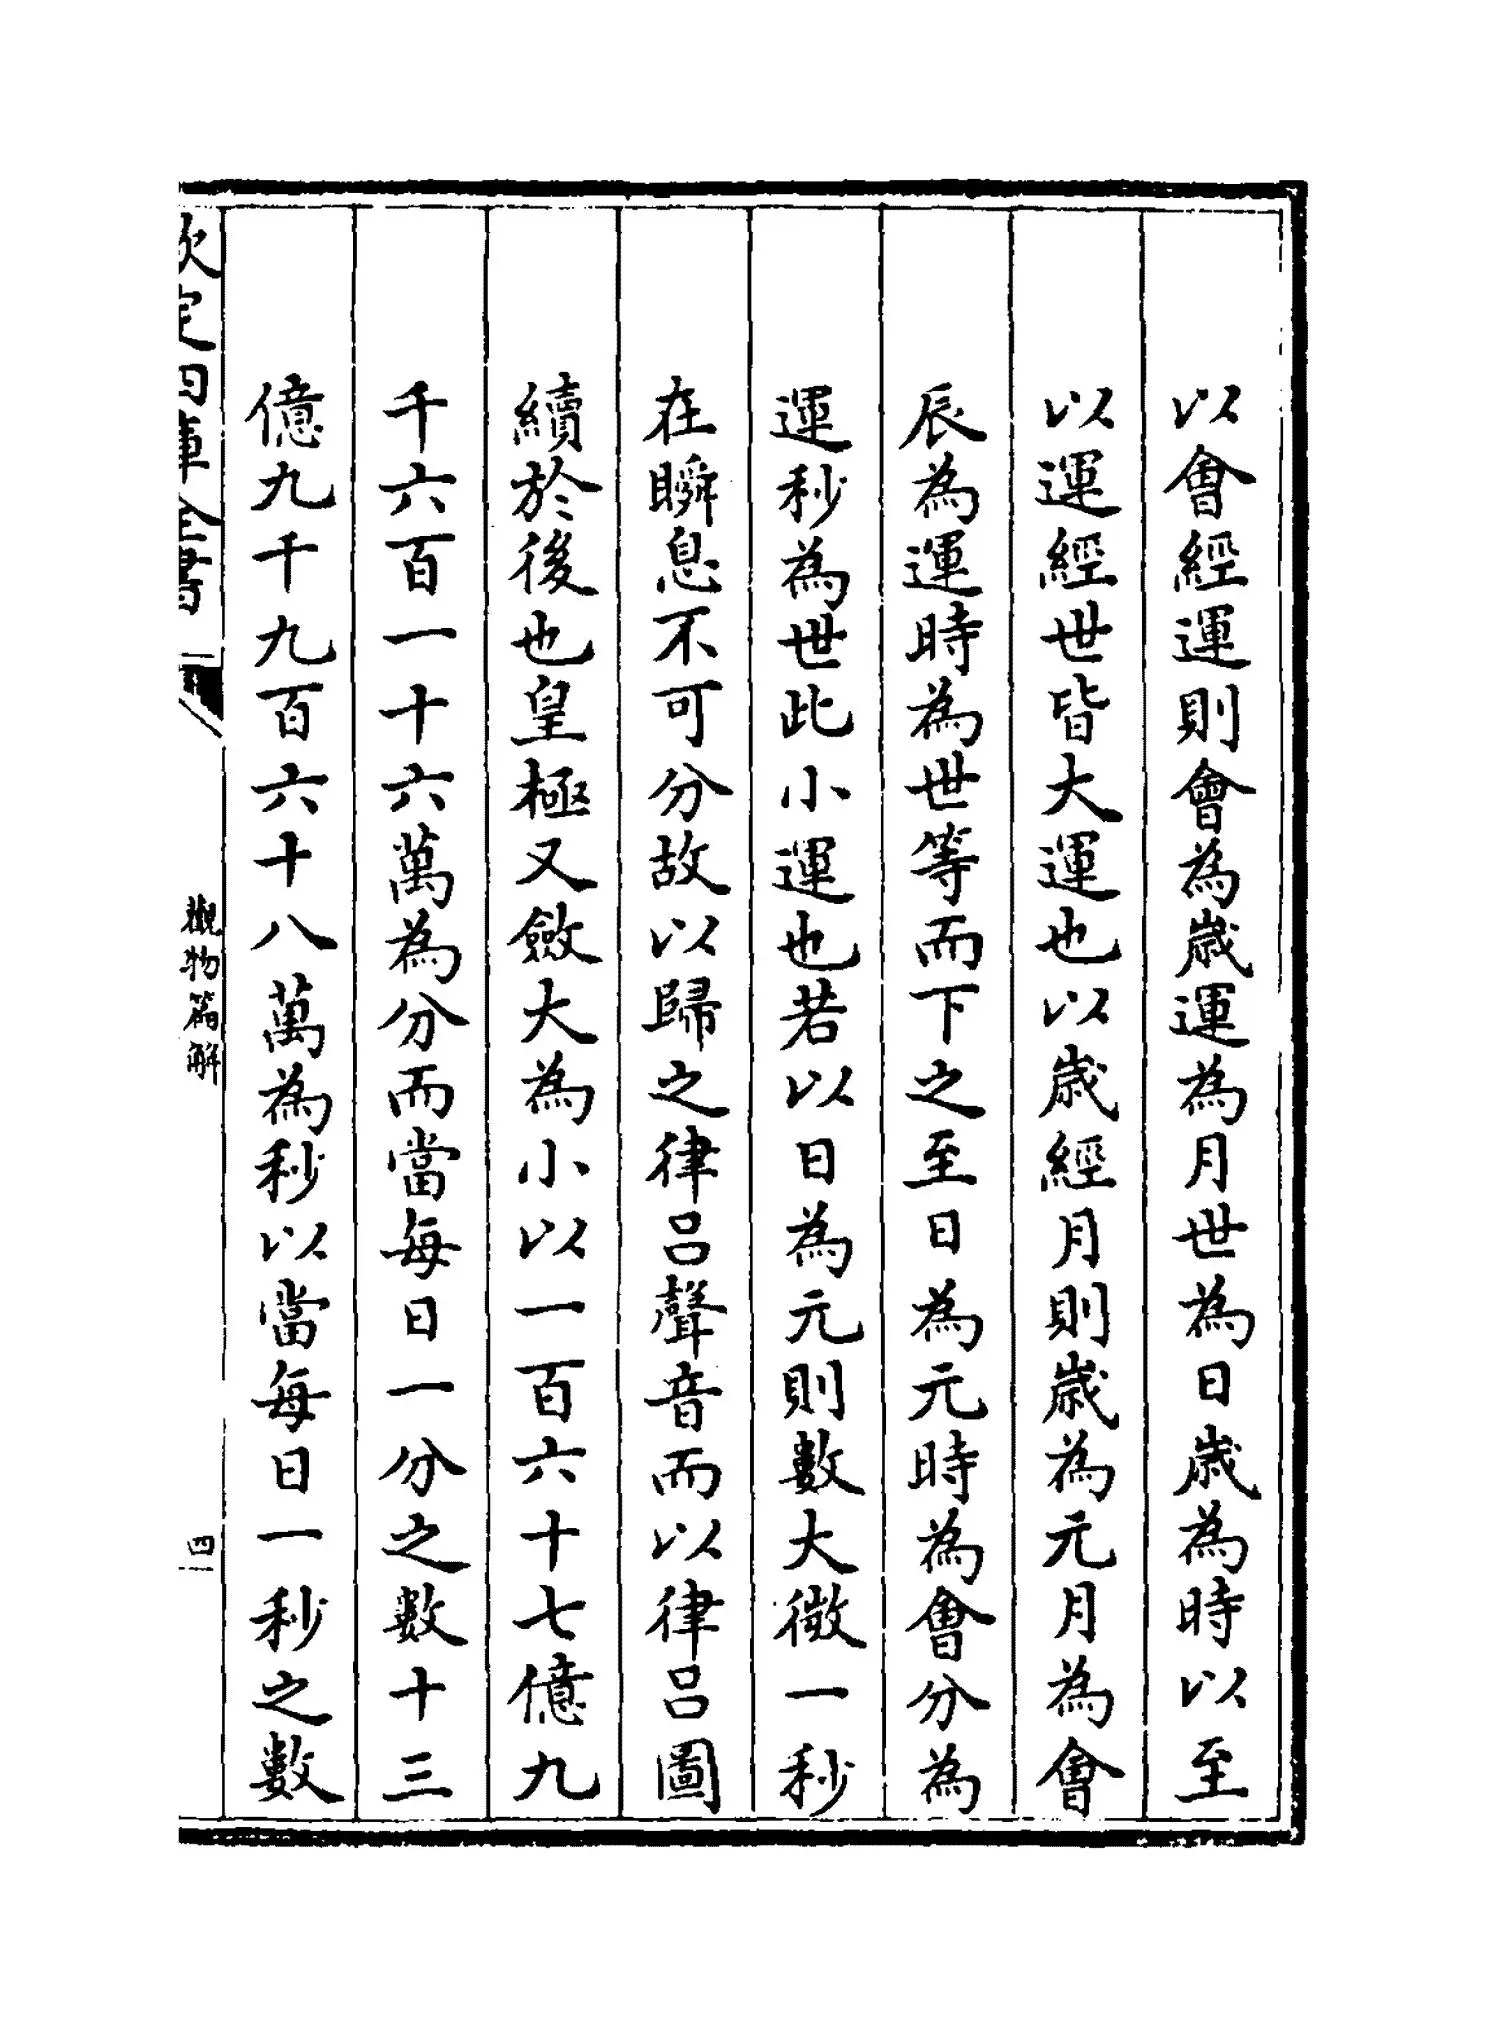 以會經運則會為歲運為月世為日歲為時以至
以運經世皆大運也以歲經月則歲為元月為會
辰為運時為世等而下之至日為元時為會分為
運秒為世此小運也若以日為元則數大微一秒
在瞬息不可分故以歸之律呂聲音而以律呂圖
續於後也皇極又斂大為小以一百六十七億九
千六百一十六萬為分而當每日一分之數十三
億九千九百六十八萬為秒以當每日一秒之數
欽定四庫全書
觀物篇解
四